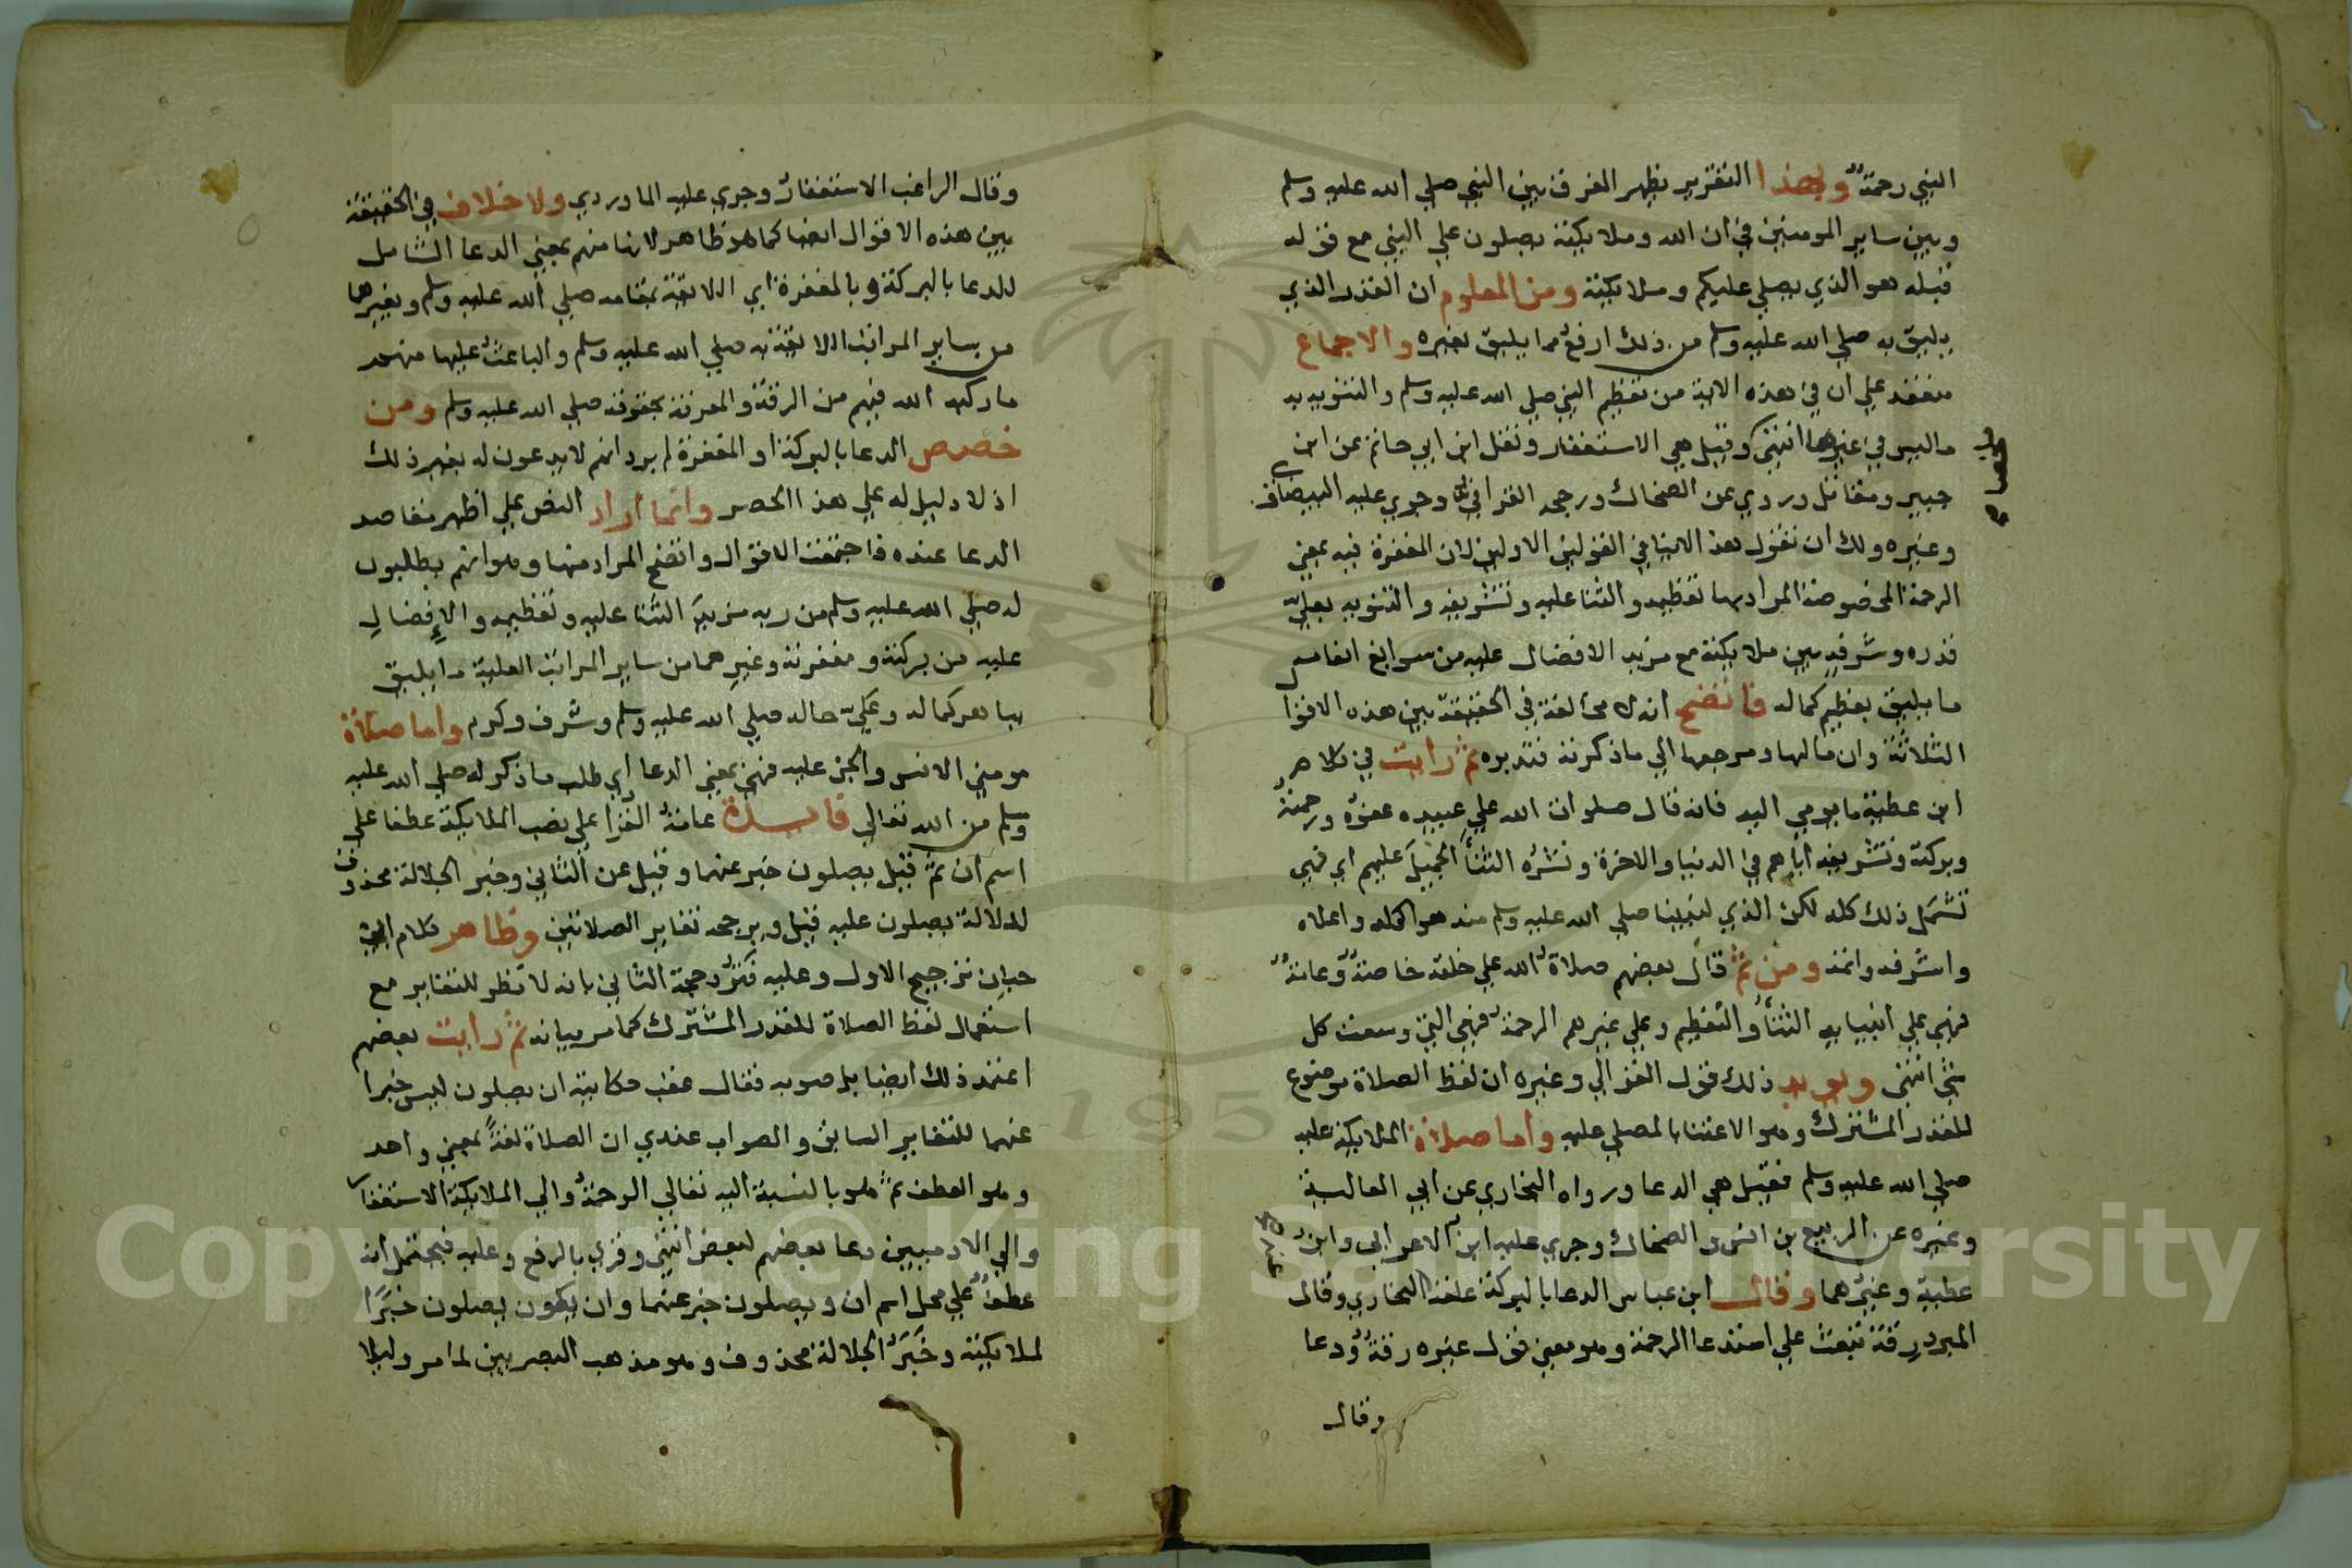 النبي رحمة وبهذا التقرير يظهر الفرق بين النبي صلي الله عليه وسلم
وبين ساير المومنين في ان الله وملايكته يصلون علي النبي مع قوله
قبله هو الذي يصلي عليكم وملايكته ومن المعلوم ان القدر الذي
يليق به صلي الله عليه وسلم من ذلك ارفع مما يليق بغيره والاجماع
منعقد علي ان في هذه الاية من تعظيم النبي صلي الله عليه وسلم والتنويه به
ما ليس في غيرها انتهى وقيل هي الاستغفار ونقل ابن ابي حاتم عن ابن
جبير ومقاتل وروي عن الضحاك ورجحه القرافي وجري عليه البيضاوي
وغيره ولك ان تقول هذ الاينافي القولين الاولين لان المغفرة فيه بمعني
الرحمة المخصوصة المراد بها تعظيمه والثنا عليه وتشريفه والتنويه بعليّ
قدره وشرفه بين ملايكته مع مزيد الافضال عليه من سوابغ انعامه
ما يليق بعظيم كماله فاتضح انه لا مخالفة في الحقيقة بين هذه الاقوا
الثلاثة وان مالها ومرجعها الي ما ذكرته فتدبره ثم رايت في كلام
ابن عطية ما يومي اليه فانه قال صلوات الله علي عبيده عفوه ورحمته
وبركته وتشريفه اياهم في الدنيا والاخرة ونشره الثناء الجميل عليهم اي فهي
تشمل ذلك كله لكن الذي لنبينا صلي الله عليه وسلم منه هو اكمله واعلاه
واشرفه واتمه ومن ثم قال بعضهم صلاة الله علي خلقه خاصة وعامة
فهي علي انبيايه الثناء والتعظيم وعلي غيرهم الرحمة فهي التي وسعت كل
شي انتهى ويويد ذلك قول الغزالي وغيره ان لفظ الصلاة موضوع
للقدر المشترك وهو الاعتنا بالمصلي عليه واما صلاة الملايكة عليه
صلي الله عليه وسلم فقيل هي الدعا ورواه البخاري عن ابي العالية
وغيره عن الربيع بن انس والضحاك وجري عليه ابن الاعرابي وابن
عطية وغيرهما وقال ابن عباس الدعا بالبركة علقه البخاري وقال
المبرد رقة تبعث علي استدعا الرحمة وهو معني قول غيره رقة ودعا
وقال
وقال الراغب الاستغفار وجري عليه الماوردي ولا خلاف في الحقيقة
بين هذه الاقوال ايضا كما هو ظاهر لانها منهم بمعني الدعا الشامل
للدعا بالبركة وبالمغفرة اي اللايقة بمقامه صلي الله عليه وسلم وبغيرهما
من ساير المراتب اللايقة به صلي الله عليه وسلم والباعث عليها منهم
ما ركبه الله فيهم من الرقة والمعرفة بحقوقه صلي الله عليه وسلم ومن
خصص الدعا بالبركة او المغفرة لم يرد انهم لا يدعون له بغير ذلك
اذ لا دليل له علي هذا الحصر وانما اراد النص علي اظهر مقاصد
الدعا عنده فاجتمعت الاقوال واتضح المراد منها وهو انهم يطلبون
له صلي الله عليه وسلم من ربه مزيد الثنا عليه وتعظيمه والافضال
عليه من بركته ومغفرته وغيرهما من ساير المراتب العلية ما يليق
بباهر كماله وعليّ حاله صلي الله عليه وسلم وشرف وكرم واما صلاة
مومني الانس والجن عليه فهي بمعني الدعا اي طلب ما ذكر له صلي الله عليه
وسلم من الله تعالي فايدة عامة القرا علي نصب الملايكة عطفا علي
اسم ان ثم قيل يصلون خبر عنهما وقيل عن الثاني وخبر الجلالة محذوف
للدلالة يصلون عليه قيل ويرجحه تغاير الصلاتين وظاهر كلام ابي
حيان ترجيح الاول وعليه فترد حجة الثاني بانه لا نظر للتغاير مع
استعمال لفظ الصلاة للقدر المشترك كما مر بيانه ثم رايت بعضهم
اعتمد ذلك ايضا بل صوبه فقال عقب حكايته ان يصلون ليس خبرا
عنهما للتغاير السابق والصواب عندي ان الصلاة لغة بمعني واحد
وهو العطف ثم هو بالنسبة اليه تعالي الرحمة والي الملايكة الاستغفار
والي الادميين دعا بعضهم لبعض انتهى وقري بالرفع وعليه فيحتمل انه
عطف علي محل اسم ان ويصلون خبر عنهما وان يكون يصلون خبرا
لملايكته وخبر الجلالة محذوف وهو مذهب البصريين لما مر وليلا
Copyright © King Saud University
195